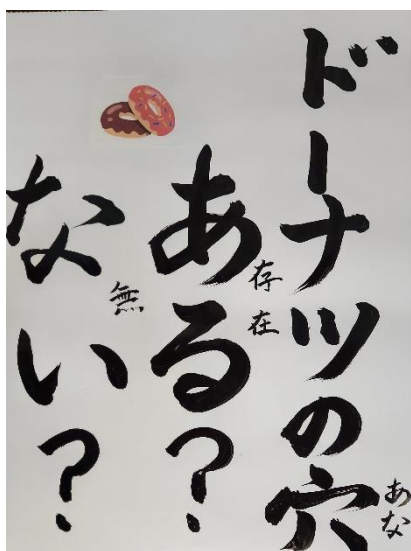 ドーナツの穴
あな
ある？
存在
ない？
無